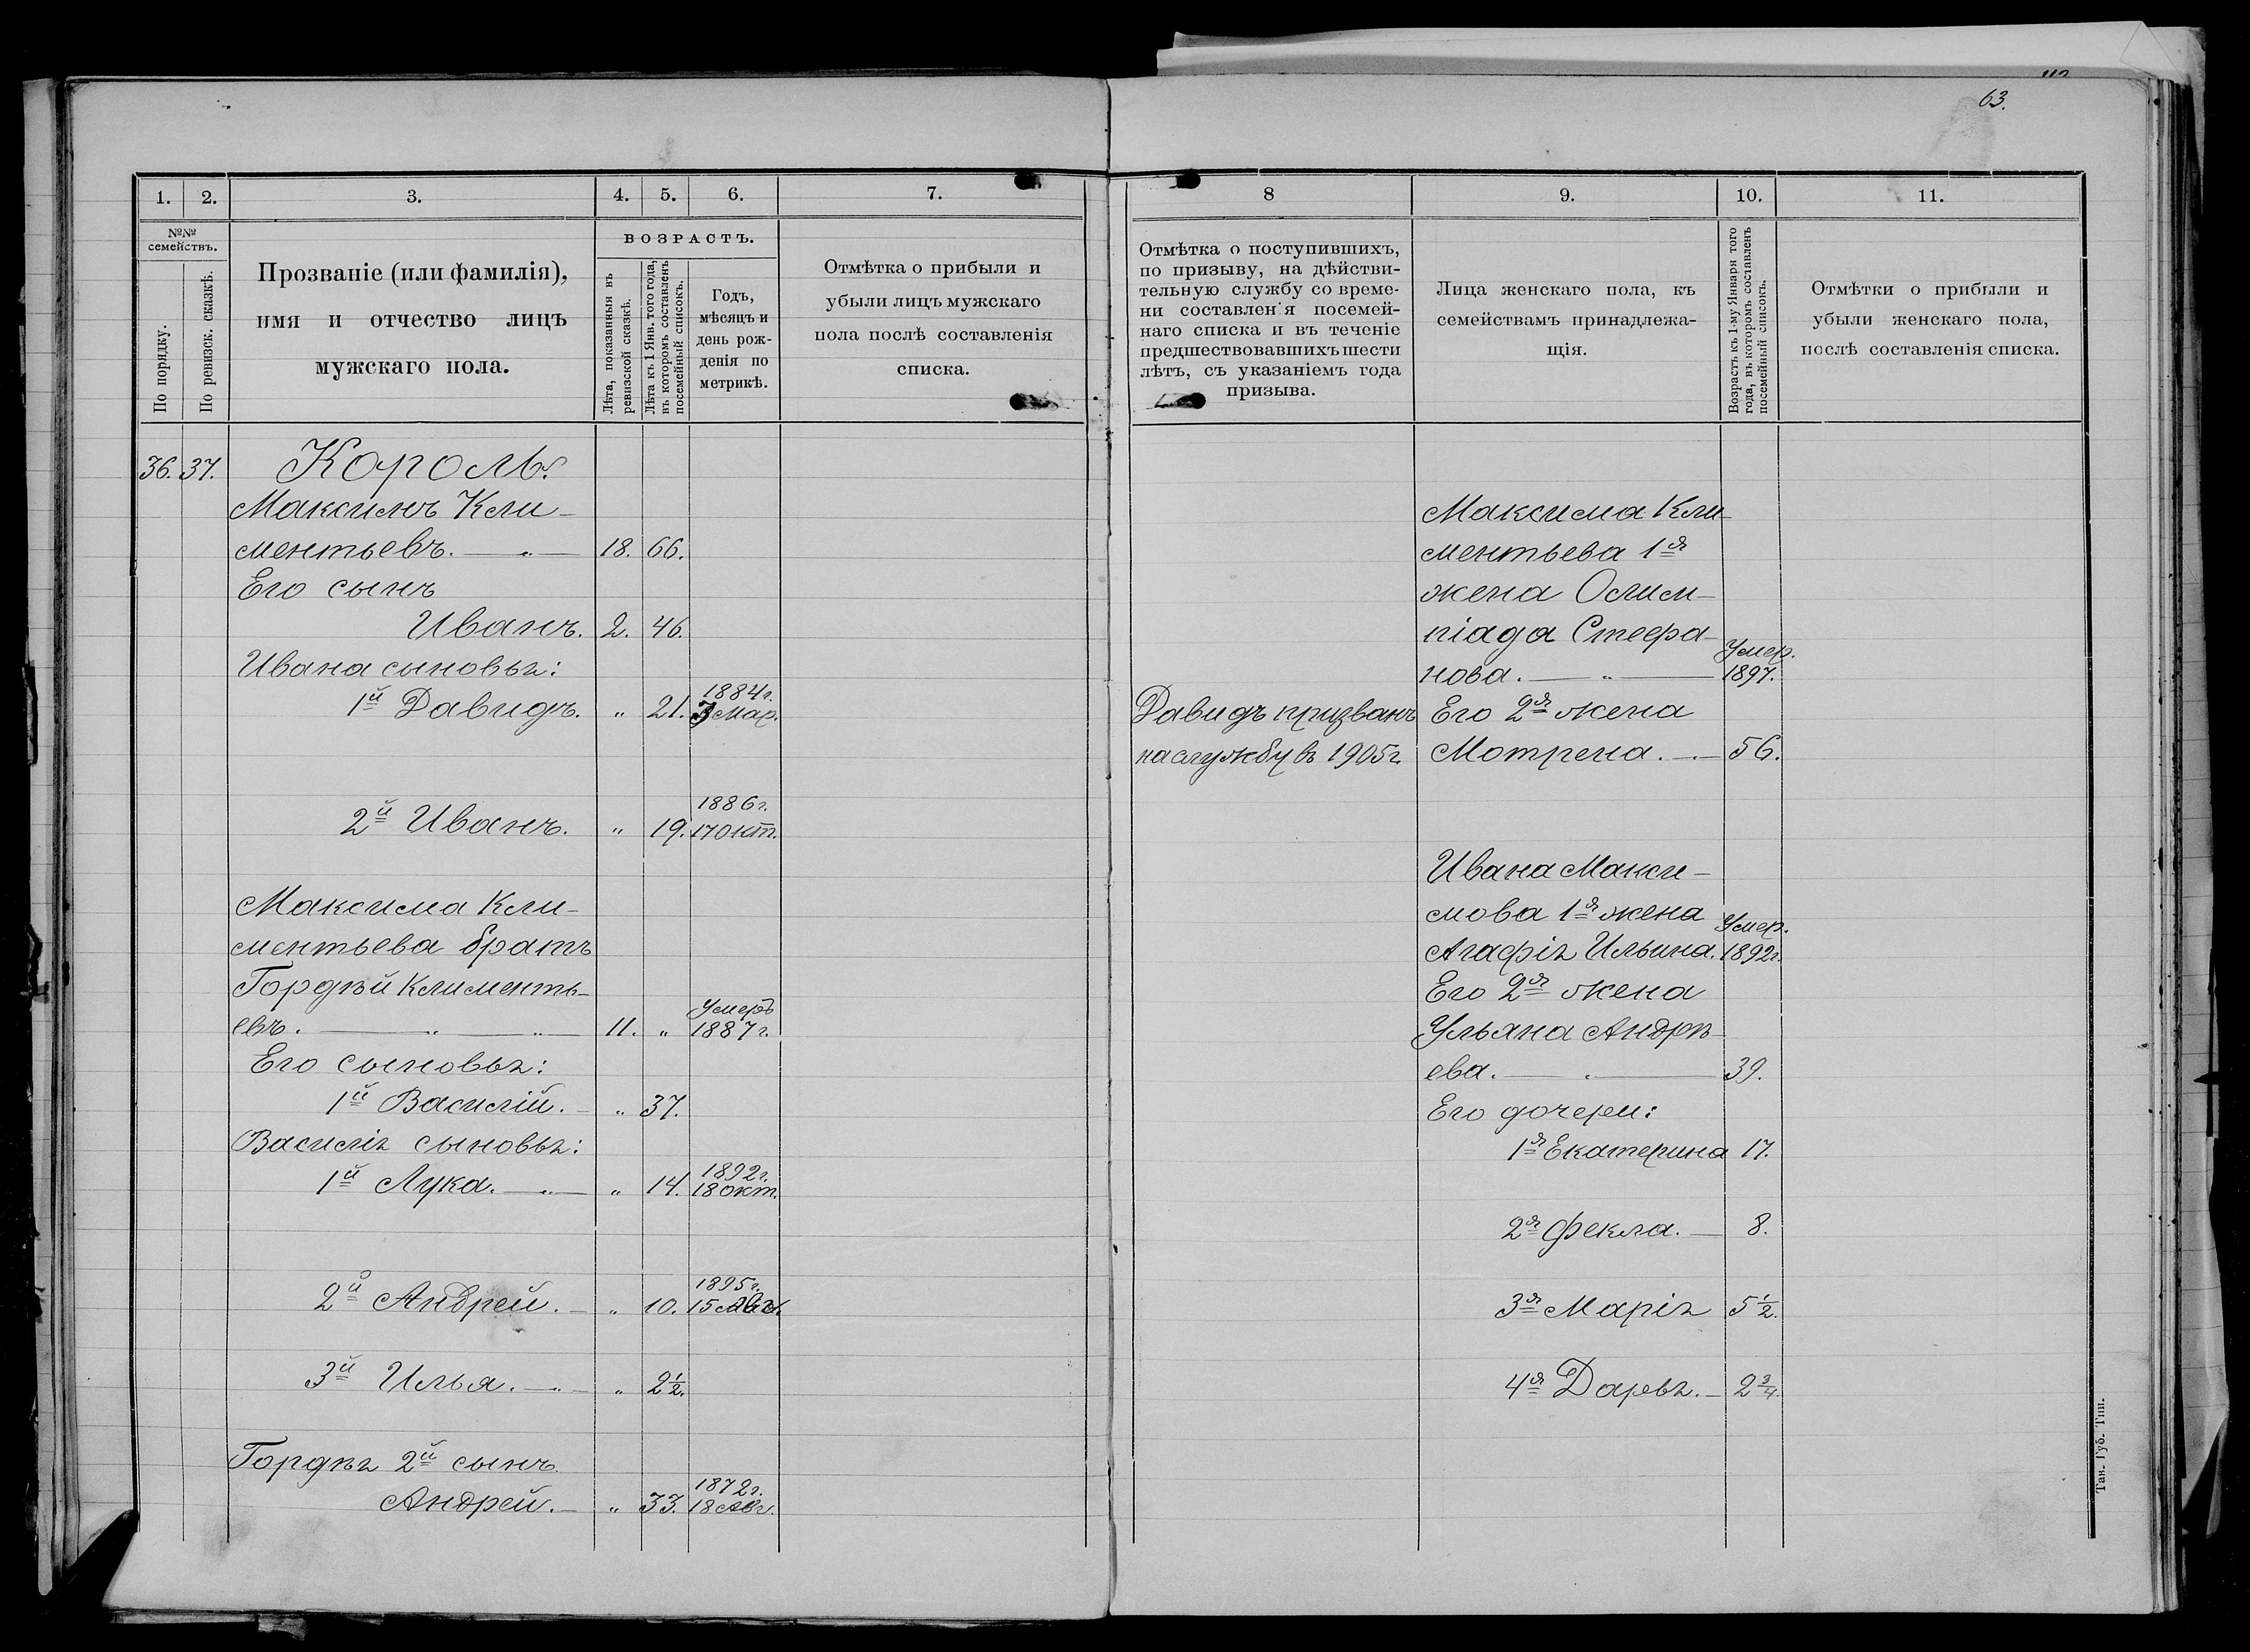 63.
1. 2. 3. 4. 5. 6. 7.
№№ семействъ.
По порядку.
По ревизск. сказкѣ.
Прозваніе (или фамилія),
имя и отчество лицъ
мужскаго пола.
ВОЗРАСТЪ.
Лѣта, показанныя въ
ревизской сказкѣ.
Лѣта къ 1 Янв. того года,
въ которомъ составленъ
посемейный списокъ.
Годъ,
мѣсяцъ и
день рож-
денія по
метрикѣ.
Отмѣтка о прибыли и
убыли лицъ мужскаго
пола послѣ составленія
списка.
36. 37. Король.
Максимъ Кли-
ментьевъ. 18. 66.
Его сынъ
Иванъ. 2. 46.
Ивана сыновья:
1й Давидъ. " 21. 1884г.
3 Мар.
2й Иванъ. " 19. 1886г.
17 Окт.
Максима Кли-
ментьева братъ
Гордѣй Клименть-
евъ. 11. " Умеръ
1887г.
Его сыновья:
1й Василій. " 37.
Василія сыновья:
1й Лука. " 14. 1892г.
18 Окт.
2й Андрей. " 10. 1895г.
15 Авг.
3й Илья. " 2½.
Гордѣя 2й сынъ
Андрей. " 33. 1872г.
18 Авг.
8 9. 10. 11.
Отмѣтка о поступившихъ,
по призыву, на дѣйстви-
тельную службу со време-
ни составленія посемей-
наго списка и въ теченіе
предшествовавшихъ шести
лѣтъ, съ указаніемъ года
призыва.
Лица женскаго пола, къ
семействамъ принадлежа-
щія.
Возрастъ къ 1-му Января того
года, въ которомъ составленъ
посемейный списокъ.
Отмѣтки о прибыли и
убыли женскаго пола,
послѣ составленія списка.
Максима Кли-
ментьева 1я
жена Олим-
піада Стефа-
нова. Умер.
1897.
Давидъ призванъ
на службу въ 1905г.
Его 2я жена
Мотрена. 56.
Ивана Макси-
мова 1я жена
Агафія Ильина. Умер.
1892г.
Его 2я жена
Ульяна Андрѣ-
ева. 39.
Его дочери:
1я Екатерина 17.
2я Фекла. 8.
3я Марія 5½.
4я Дарья. 2¾.
Тав. Губ. Тип.